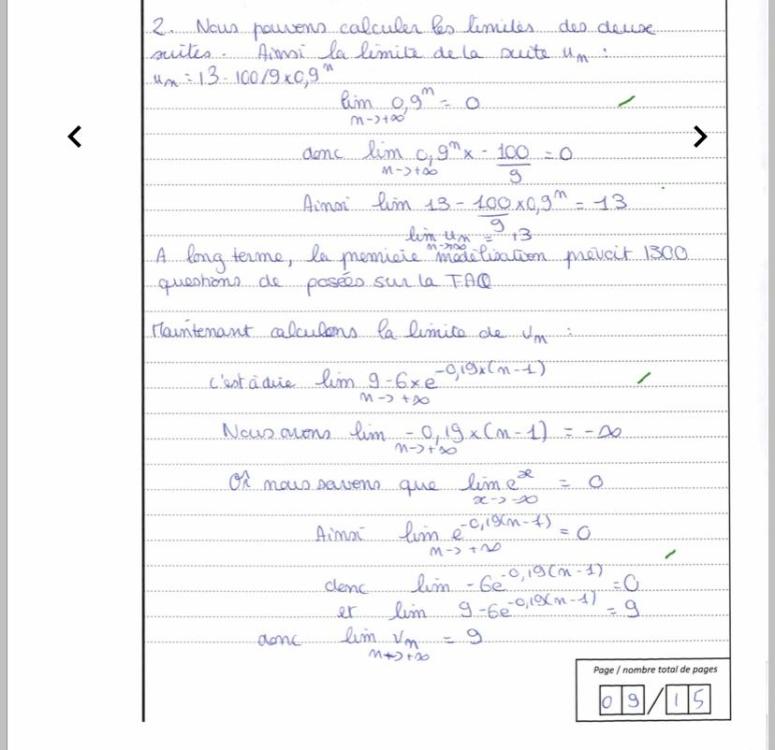 2. Nous pouvons calculer les limites des deux
suites. Ainsi la limite de la suite un :
un = 13 - 100/9 x 0,9^n
lim 0,9^n = 0
n->+∞
donc lim 0,9^n x - 100/9 = 0
n->+∞
Ainsi lim 13 - 100/9 x 0,9^n = 13
lim un = 13
n->+∞
A long terme, la première modélisation prévoit 1300
questions de posées sur la FAQ
Maintenant calculons la limite de vn :
c'est à dire lim 9 - 6 x e^-0,19x(n-1)
n->+∞
Nous avons lim -0,19 x (n-1) = -∞
n->+∞
Or nous savons que lim e^x = 0
x->-∞
Ainsi lim e^-0,19(n-1) = 0
n->+∞
donc lim -6e^-0,19(n-1) = 0
et lim 9-6e^-0,19(n-1) = 9
donc lim vn = 9
n->+∞
Page / nombre total de pages
09/15